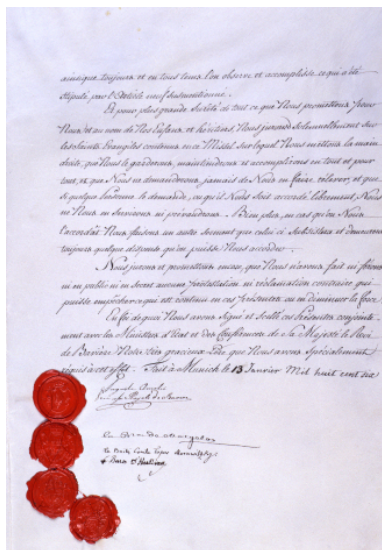 ainsi que toujours et en tous tems l'on observe et accomplisse ce qui a été
stipulé par l'Article neuf susmentionné.
Et pour plus grande Sureté de tout ce que Nous promettons pour
Nous et au nom de Nos Enfans et héritiers, Nous jurons solemnellement sur
les Saints Evangiles contenus en ce Missel sur lequel Nous mettons la main
droite, que Nous le garderons, maintiendrons et accomplirons en tout et pour
tout, et que Nous ne demanderons jamais de Nous en faire relever, et que
si quelque personne le demande, ou qu'il Nous soit accordé librement Nous
ne Nous en servirons ni prévaudrons. Bien plus, en cas qu'on Nous
l'accordât Nous faisons un autre serment que celui ci Subsistera et demeurera
toujours quelque dispense qu'on puisse Nous accorder.
Nous jurons et promettons encore, que Nous n'avons fait ni ferons
ni en public ni en secret aucune protestation ni réclamation contraire qui
puisse empêcher ce qui est contenu en ces présentes ou en diminuer la force.
En foi de quoi Nous avons Signé et Scellé ces présentes conjointe-
ment avec les Ministres d'état et des Conférences de Sa Majesté le Roi
de Bavière Notre très gracieux Père que Nous avons Spécialement
requis à cet effet. Fait à Munich le 13 Janvier Mil huit cent six
Auguste Amelie
de Baviere
Le Baron de Montgelas